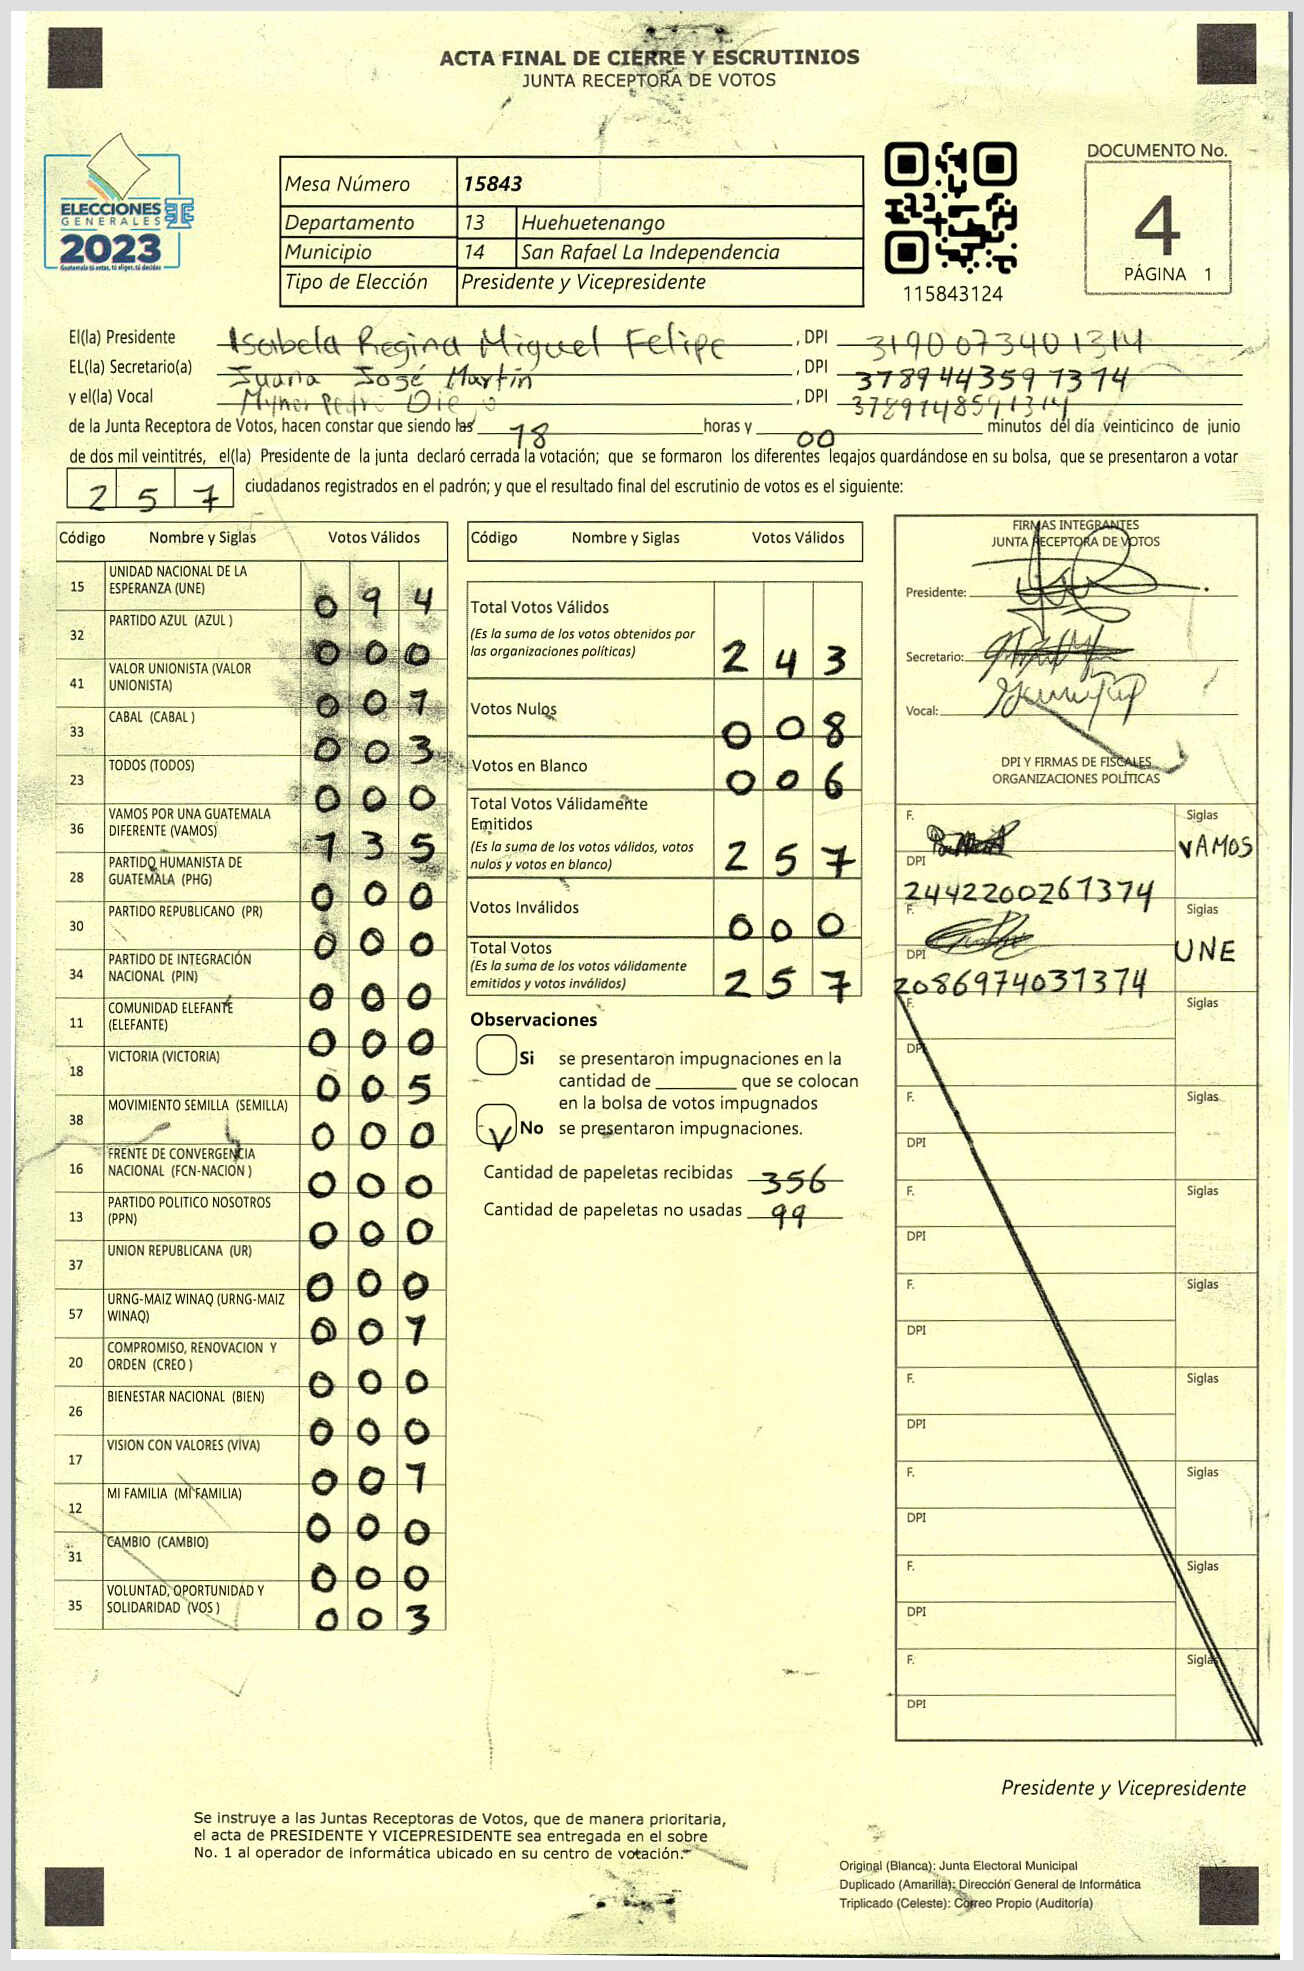 ACTA FINAL DE CIERRE Y ESCRUTINIOS
JUNTA RECEPTORA DE VOTOS
ELECCIONES
GENERALES
2023
Guatemala tú votas, tú eliges, tú decides
Mesa Número 15843
Departamento 13 Huehuetenango
Municipio 14 San Rafael La Independencia
Tipo de Elección Presidente y Vicepresidente
115843124
DOCUMENTO No.
4
PÁGINA 1
El(la) Presidente Isabela Regina Miguel Felipe, DPI 3190073401314
EL(la) Secretario(a) Juana José Martín, DPI 3789443591314
y el(la) Vocal Mynor Pedro Diego, DPI 3789148591314
de la Junta Receptora de Votos, hacen constar que siendo las 18 horas y 00 minutos del día veinticinco de junio
de dos mil veintitrés, el(la) Presidente de la junta declaró cerrada la votación; que se formaron los diferentes legajos guardándose en su bolsa, que se presentaron a votar
257 ciudadanos registrados en el padrón; y que el resultado final del escrutinio de votos es el siguiente:
Código Nombre y Siglas Votos Válidos
15 UNIDAD NACIONAL DE LA ESPERANZA (UNE) 094
32 PARTIDO AZUL (AZUL ) 000
41 VALOR UNIONISTA (VALOR UNIONISTA) 001
33 CABAL (CABAL ) 003
23 TODOS (TODOS) 000
36 VAMOS POR UNA GUATEMALA DIFERENTE (VAMOS) 135
28 PARTIDO HUMANISTA DE GUATEMALA (PHG) 000
30 PARTIDO REPUBLICANO (PR) 000
34 PARTIDO DE INTEGRACIÓN NACIONAL (PIN) 000
11 COMUNIDAD ELEFANTE (ELEFANTE) 000
18 VICTORIA (VICTORIA) 005
38 MOVIMIENTO SEMILLA (SEMILLA) 000
16 FRENTE DE CONVERGENCIA NACIONAL (FCN-NACION ) 000
13 PARTIDO POLITICO NOSOTROS (PPN) 000
37 UNION REPUBLICANA (UR) 000
57 URNG-MAIZ WINAQ (URNG-MAIZ WINAQ) 001
20 COMPROMISO, RENOVACION Y ORDEN (CREO ) 000
26 BIENESTAR NACIONAL (BIEN) 000
17 VISION CON VALORES (VIVA) 001
12 MI FAMILIA (MI FAMILIA) 000
31 CAMBIO (CAMBIO) 000
35 VOLUNTAD, OPORTUNIDAD Y SOLIDARIDAD (VOS ) 003
Código Nombre y Siglas Votos Válidos
Total Votos Válidos 243
(Es la suma de los votos obtenidos por
las organizaciones políticas)
Votos Nulos 008
Votos en Blanco 006
Total Votos Válidamente
Emitidos
(Es la suma de los votos válidos, votos
nulos y votos en blanco) 257
Votos Inválidos 000
Total Votos
(Es la suma de los votos válidamente
emitidos y votos inválidos) 257
Observaciones
Si se presentaron impugnaciones en la
cantidad de ________ que se colocan
en la bolsa de votos impugnados
No se presentaron impugnaciones.
Cantidad de papeletas recibidas 356
Cantidad de papeletas no usadas 99
FIRMAS INTEGRANTES
JUNTA RECEPTORA DE VOTOS
Presidente:
Secretario:
Vocal:
DPI Y FIRMAS DE FISCALES
ORGANIZACIONES POLÍTICAS
F. Siglas VAMOS
DPI 2442200261314
F. Siglas UNE
DPI 2086974031314
F. Siglas
DPI
F. Siglas
DPI
F. Siglas
DPI
F. Siglas
DPI
F. Siglas
DPI
F. Siglas
DPI
F. Siglas
DPI
F. Siglas
DPI
Presidente y Vicepresidente
Se instruye a las Juntas Receptoras de Votos, que de manera prioritaria,
el acta de PRESIDENTE Y VICEPRESIDENTE sea entregada en el sobre
No. 1 al operador de informática ubicado en su centro de votación.
Original (Blanca): Junta Electoral Municipal
Duplicado (Amarilla): Dirección General de Informática
Triplicado (Celeste): Correo Propio (Auditoría)